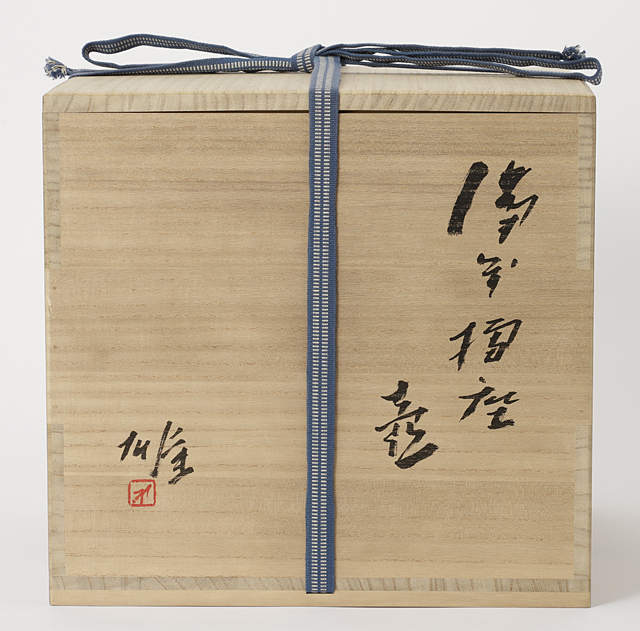 備前擂座
壺
雄